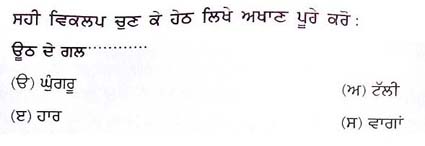 ਸਹੀ ਵਿਕਲਪ ਚੁਣ ਕੇ ਹੇਠ ਲਿਖੇ ਅਖਾਣ ਪੂਰੇ ਕਰੋ :
ਊਠ ਦੇ ਗਲ.............
(ੳ) ਘੁੰਗਰੂ
(ਅ) ਟੱਲੀ
(ੲ) ਹਾਰ
(ਸ) ਵਾਗਾਂ